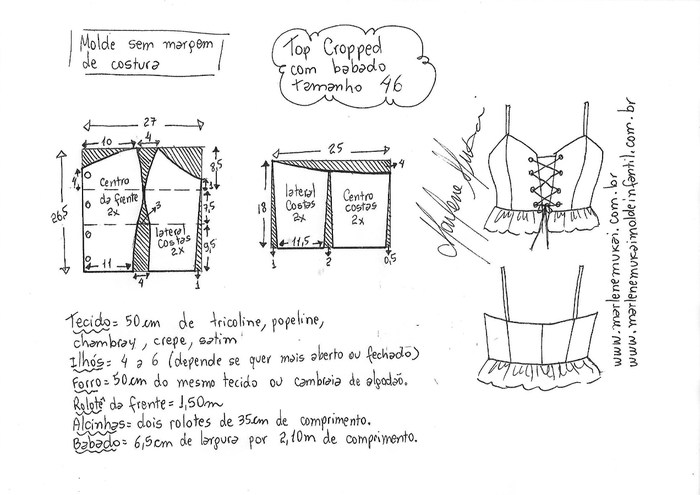 Molde sem margem
de costura
Top Cropped
com babado
tamanho 46
27
10
4
8,5
4
3
26,5
Centro
da frente
2x
7,5
3
lateral
costas
2x
9,5
11
4
1
25
4
18
lateral
Costas
2x
Centro
costas
2x
11,5
1
2
0,5
Marlene Mukai
www.marlenemukai.com.br
www.marlenemukaimoldeinfantil.com.br
Tecido= 50cm de tricoline, popeline,
chambray, crepe, satim
Ilhós= 4 a 6 (depende se quer mais aberto ou fechado)
Forro= 50cm do mesmo tecido ou cambraia de algodão.
Rolotê da frente= 1,50m
Alcinhas= dois rolotes de 35cm de comprimento.
Babado= 6,5cm de largura por 2,10m de comprimento.